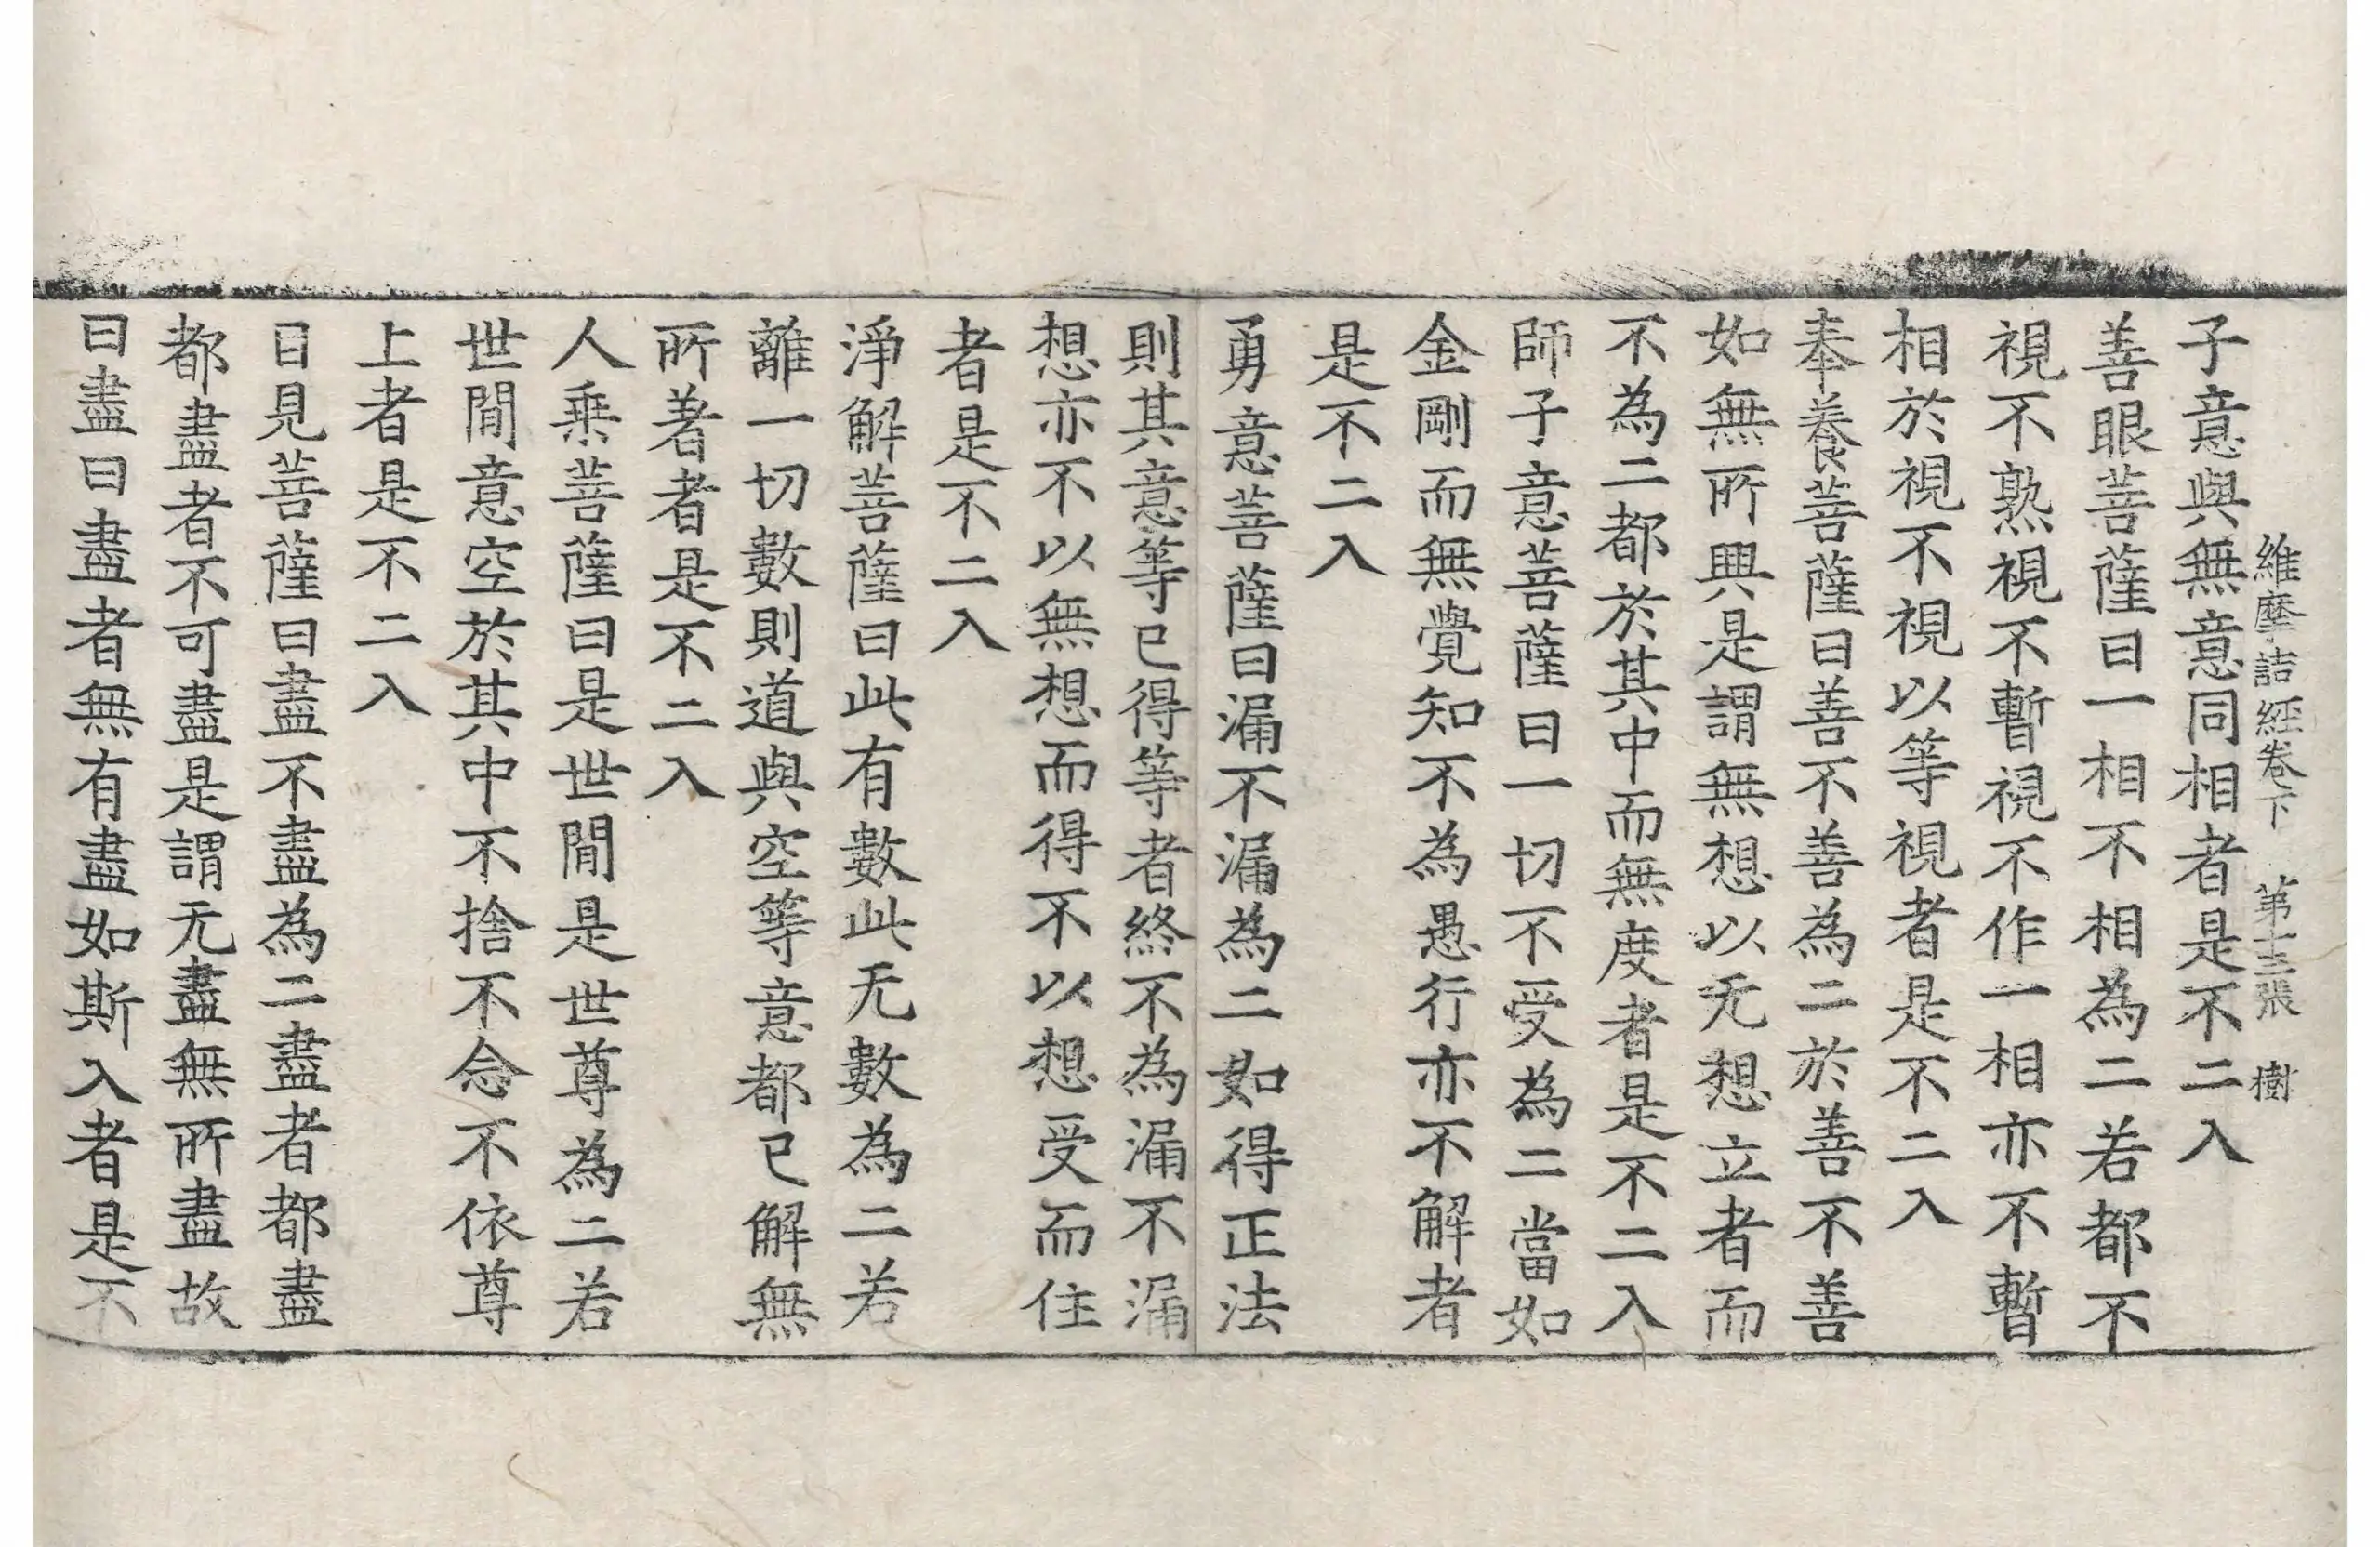 維摩詰經卷下 第十三張 樹
子意與無意同相者是不二入
善眼菩薩曰一相不相為二若都不
視不熟視不暫視不作一相亦不暫
相於視不視以等視者是不二入
奉養菩薩曰善不善為二於善不善
如無所興是謂無想以无想立者而
不為二都於其中而無度者是不二入
師子意菩薩曰一切不受為二當如
金剛而無覺知不為愚行亦不解者
是不二入
勇意菩薩曰漏不漏為二如得正法
則其意等已得等者終不為漏不漏
想亦不以無想而得不以想受而住
者是不二入
淨解菩薩曰此有數此无數為二若
離一切數則道與空等意都已解無
所著者是不二入
人乘菩薩曰是世間是世尊為二若
世間意空於其中不捨不念不依尊
上者是不二入
目見菩薩曰盡不盡為二盡者都盡
都盡者不可盡是謂无盡無所盡故
曰盡曰盡者無有盡如斯入者是不